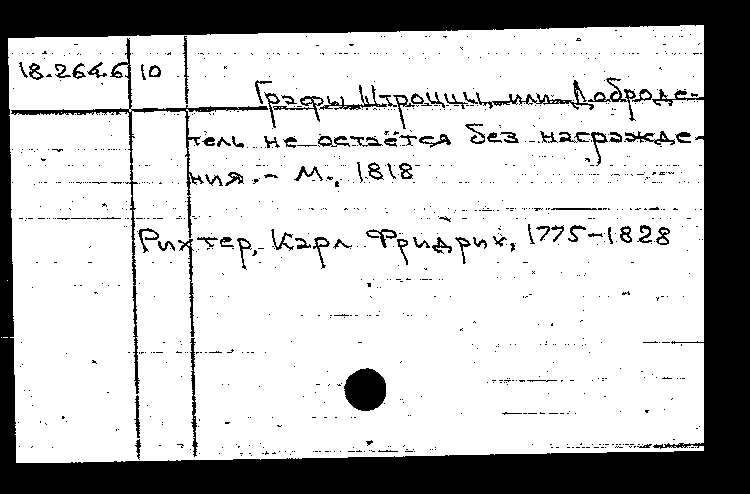 18.264.6.10
Графы Штроцци, или Доброде-
тель не остаётся без награжде-
ния. - М., 1818
Рихтер, Карл Фридрих, 1775-1828